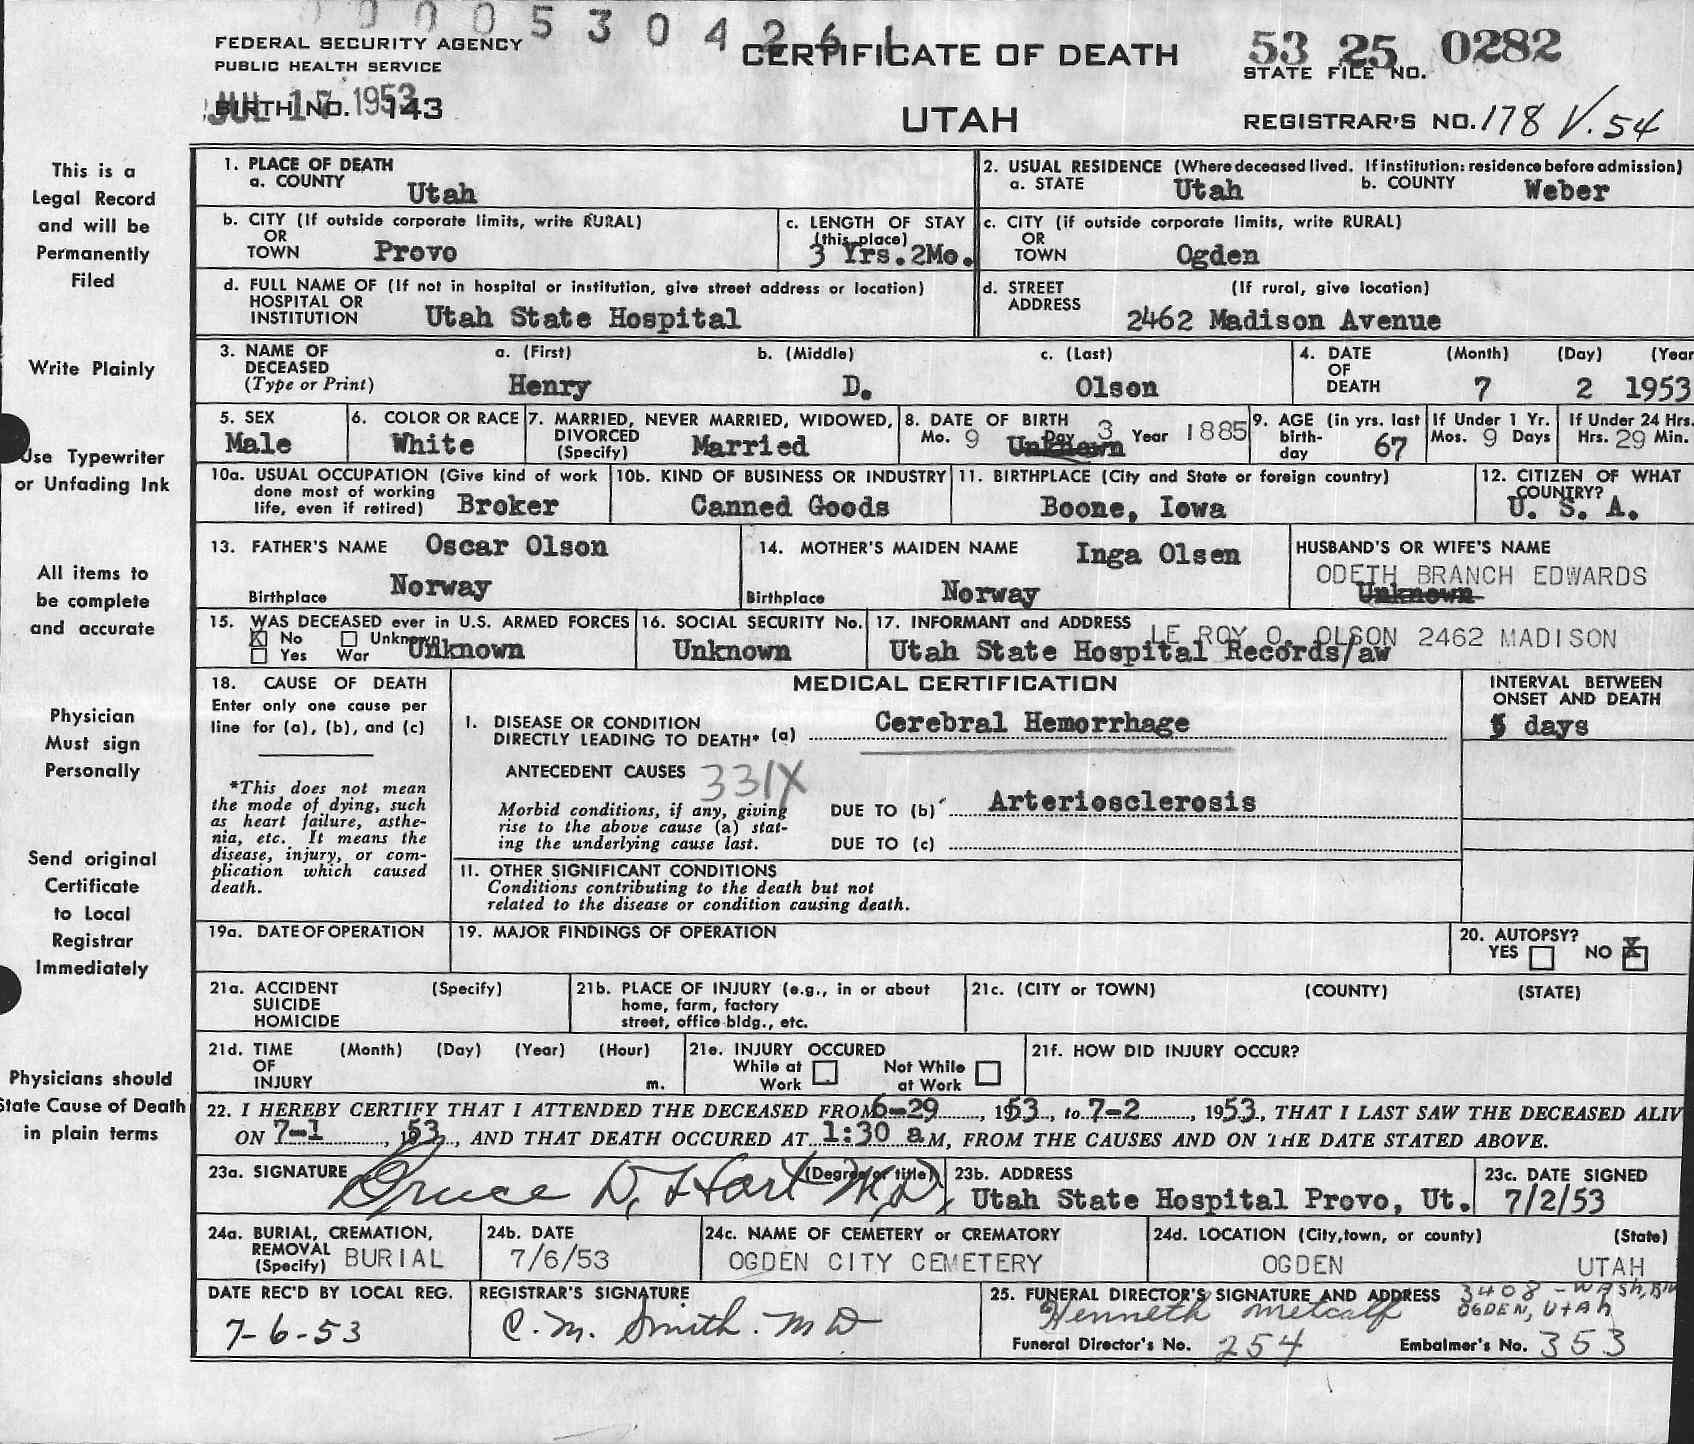 0 0 0 0 5 3 0 4 2 6 1
FEDERAL SECURITY AGENCY
PUBLIC HEALTH SERVICE
CERTIFICATE OF DEATH
53 25 0282
STATE FILE NO.
BIRTH NO. 143
JUL 17 1953
UTAH
REGISTRAR'S NO. 178 V.54
This is a
Legal Record
and will be
Permanently
Filed
Write Plainly
Use Typewriter
or Unfading Ink
All items to
be complete
and accurate
Physician
Must sign
Personally
Send original
Certificate
to Local
Registrar
Immediately
Physicians should
State Cause of Death
in plain terms
1. PLACE OF DEATH
a. COUNTY Utah
2. USUAL RESIDENCE (Where deceased lived. If institution: residence before admission)
a. STATE Utah b. COUNTY Weber
b. CITY (If outside corporate limits, write RURAL)
OR
TOWN Provo
c. LENGTH OF STAY
(this place)
3 Yrs. 2Mo.
c. CITY (if outside corporate limits, write RURAL)
OR
TOWN Ogden
d. FULL NAME OF (If not in hospital or institution, give street address or location)
HOSPITAL OR
INSTITUTION Utah State Hospital
d. STREET (If rural, give location)
ADDRESS
2462 Madison Avenue
3. NAME OF a. (First) b. (Middle) c. (Last)
DECEASED
(Type or Print) Henry D. Olson
4. DATE (Month) (Day) (Year
OF
DEATH 7 2 1953
5. SEX
Male
6. COLOR OR RACE
White
7. MARRIED, NEVER MARRIED, WIDOWED,
DIVORCED
(Specify) Married
8. DATE OF BIRTH
Mo. 9 Day 3 Year 1885
Unknown
9. AGE (in yrs. last
birth-
day 67
If Under 1 Yr.
Mos. 9 Days
If Under 24 Hrs.
Hrs. 29 Min.
10a. USUAL OCCUPATION (Give kind of work
done most of working
life, even if retired) Broker
10b. KIND OF BUSINESS OR INDUSTRY
Canned Goods
11. BIRTHPLACE (City and State or foreign country)
Boone, Iowa
12. CITIZEN OF WHAT
COUNTRY?
U. S. A.
13. FATHER'S NAME Oscar Olson
Birthplace Norway
14. MOTHER'S MAIDEN NAME Inga Olsen
Birthplace Norway
HUSBAND'S OR WIFE'S NAME
ODETH BRANCH EDWARDS
Unknown
15. WAS DECEASED ever in U.S. ARMED FORCES
No Unknown
Yes War Unknown
16. SOCIAL SECURITY No.
Unknown
17. INFORMANT and ADDRESS LE ROY O. OLSON 2462 MADISON
Utah State Hospital Records/aw
18. CAUSE OF DEATH
Enter only one cause per
line for (a), (b), and (c)
*This does not mean
the mode of dying, such
as heart failure, asthe-
nia, etc. It means the
disease, injury, or com-
plication which caused
death.
MEDICAL CERTIFICATION
I. DISEASE OR CONDITION
DIRECTLY LEADING TO DEATH* (a) Cerebral Hemorrhage
ANTECEDENT CAUSES 331X
Morbid conditions, if any, giving
rise to the above cause (a) stat-
ing the underlying cause last.
DUE TO (b) Arteriosclerosis
DUE TO (c)
II. OTHER SIGNIFICANT CONDITIONS
Conditions contributing to the death but not
related to the disease or condition causing death.
INTERVAL BETWEEN
ONSET AND DEATH
5 days
19a. DATE OF OPERATION
19. MAJOR FINDINGS OF OPERATION
20. AUTOPSY?
YES NO X
21a. ACCIDENT (Specify)
SUICIDE
HOMICIDE
21b. PLACE OF INJURY (e.g., in or about
home, farm, factory
street, office bldg., etc.
21c. (CITY or TOWN) (COUNTY) (STATE)
21d. TIME (Month) (Day) (Year) (Hour)
OF
INJURY m.
21e. INJURY OCCURED
While at Not While
Work at Work
21f. HOW DID INJURY OCCUR?
22. I HEREBY CERTIFY THAT I ATTENDED THE DECEASED FROM 6-29, 1953, to 7-2, 1953, THAT I LAST SAW THE DECEASED ALIV
ON 7-1, 1953, AND THAT DEATH OCCURED AT 1:30 a M, FROM THE CAUSES AND ON THE DATE STATED ABOVE.
23a. SIGNATURE (Degree or title)
Bruce D. Hart M.D.
23b. ADDRESS
Utah State Hospital Provo, Ut.
23c. DATE SIGNED
7/2/53
24a. BURIAL, CREMATION,
REMOVAL
(Specify) BURIAL
24b. DATE
7/6/53
24c. NAME OF CEMETERY or CREMATORY
OGDEN CITY CEMETERY
24d. LOCATION (City, town, or county) (State)
OGDEN UTAH
DATE REC'D BY LOCAL REG.
7-6-53
REGISTRAR'S SIGNATURE
C. M. Smith. M D
25. FUNERAL DIRECTOR'S SIGNATURE AND ADDRESS 3408 - WASH,
Kenneth Metcalf OGDEN, UTAH
Funeral Director's No. 254 Embalmer's No. 353